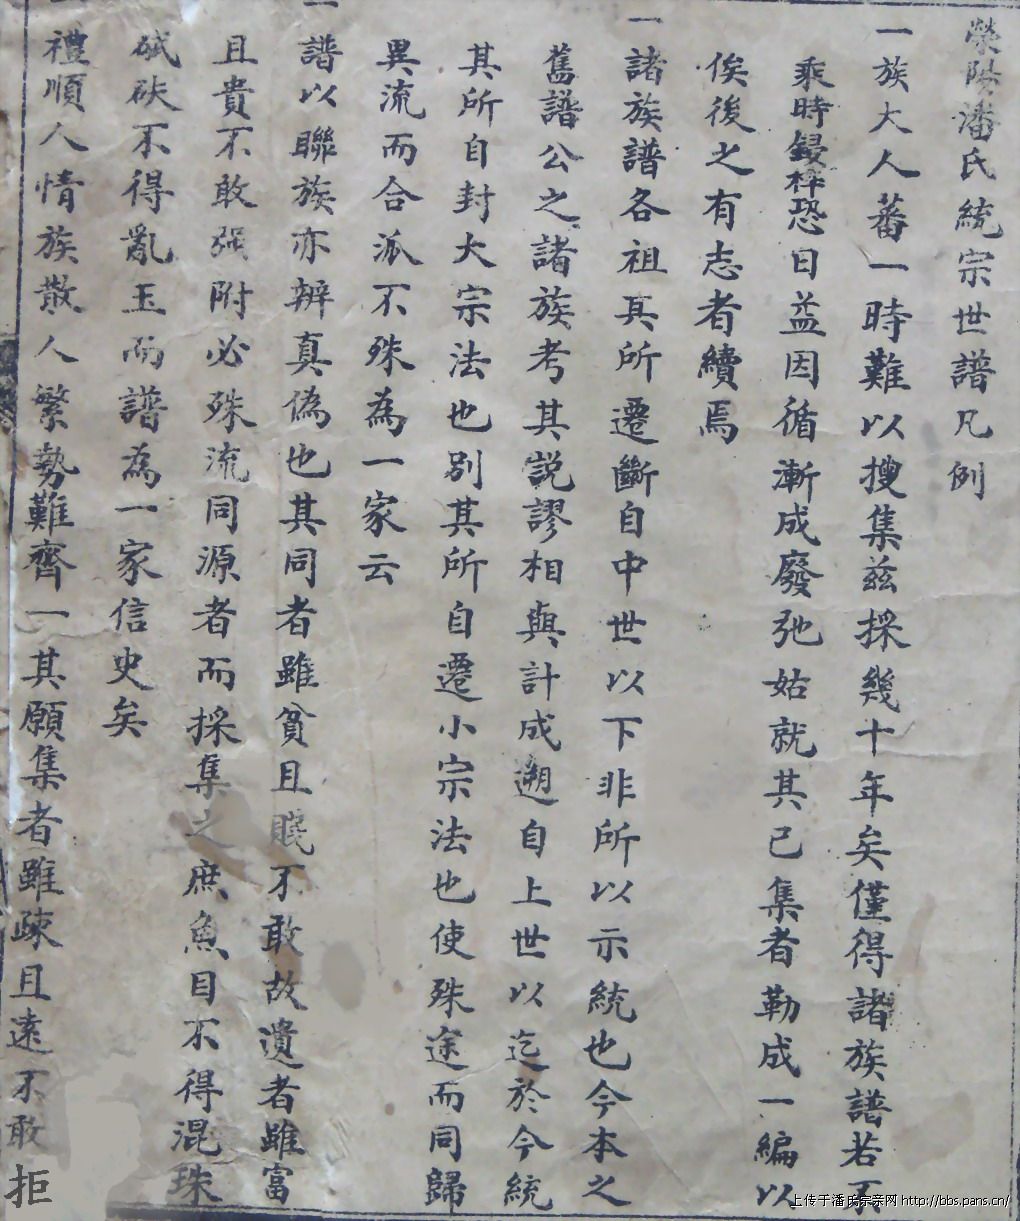 滎陽潘氏統宗世譜凡例
一族大人蕃一時難以搜集茲採幾十年矣僅得諸族譜若不
乘時鋟梓恐日益因循漸成廢弛姑就其已集者勒成一編以
俟後之有志者續焉
一諸族譜各祖其所遷斷自中世以下非所以示統也今本之
舊譜公之諸族考其説謬相與計成遡自上世以迄於今統
其所自封大宗法也別其所自遷小宗法也使殊途而同歸
異流而合派不殊為一家云
一譜以聯族亦辨真偽也其同者雖貧且賤不敢故遺者雖富
且貴不敢强附必殊流同源者而採集之庶魚目不得混珠
碔砆不得亂玉而譜為一家信史矣
一禮順人情族散人繁勢難齊一其願集者雖疎且遠不敢
拒
上传于潘氏宗亲网 http://bbs.pans.cn/